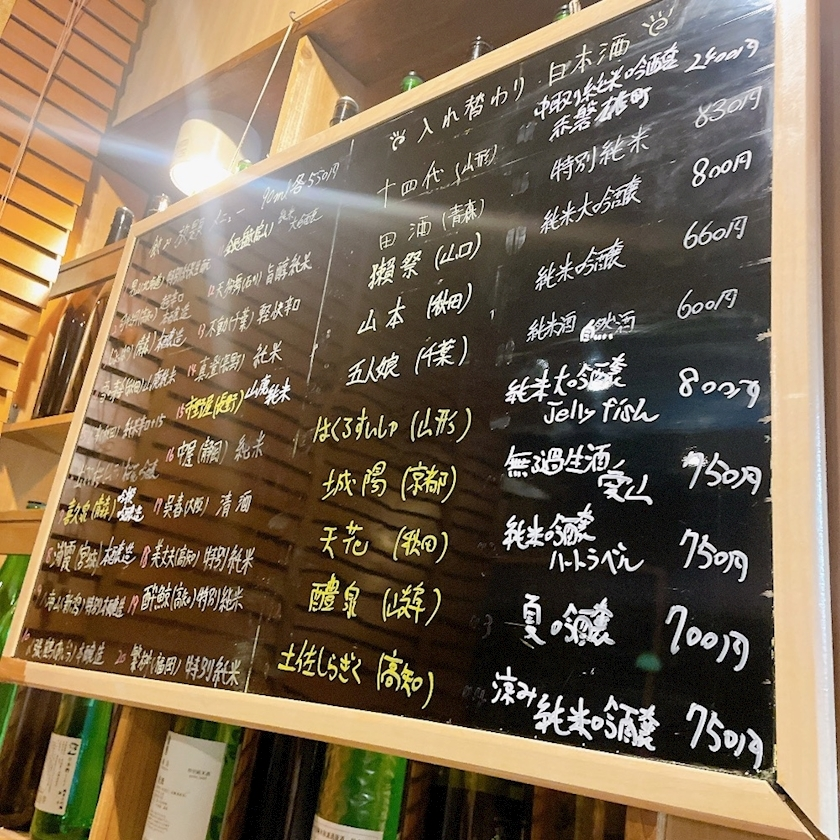 入れ替わり 日本酒
十四代(山形) 中取り純米吟醸 赤磐雄町 2400円
田酒(青森) 特別純米 830円
獺祭(山口) 純米大吟醸 800円
山本(秋田) 純米吟醸 660円
五人娘(千葉) 純米酒 自然酒 600円
はくろすいしゅ(山形) 純米大吟醸 Jelly fish 800円
城陽(京都) 無濾過生酒 愛山 750円
天花(秋田) 純米吟醸 ハートラベル 750円
醴泉(岐阜) 夏吟醸 700円
土佐しらぎく(高知) 涼み純米吟醸 750円
メニュー 90ml各550円
純米大吟醸
旨醇純米
13 不動(千葉) 軽快辛口
14 真澄(長野) 純米
15 (長野)山廃純米
16 (静岡) 純米
17 呉春(大阪) 清酒
18 美丈夫(高知) 特別純米
19 酔鯨(高知) 特別純米
20 繁桝(福岡) 特別純米
喜久泉(青森) 吟冠 本醸造
浦霞(宮城) 本醸造
(新潟) 特別本醸造
本醸造